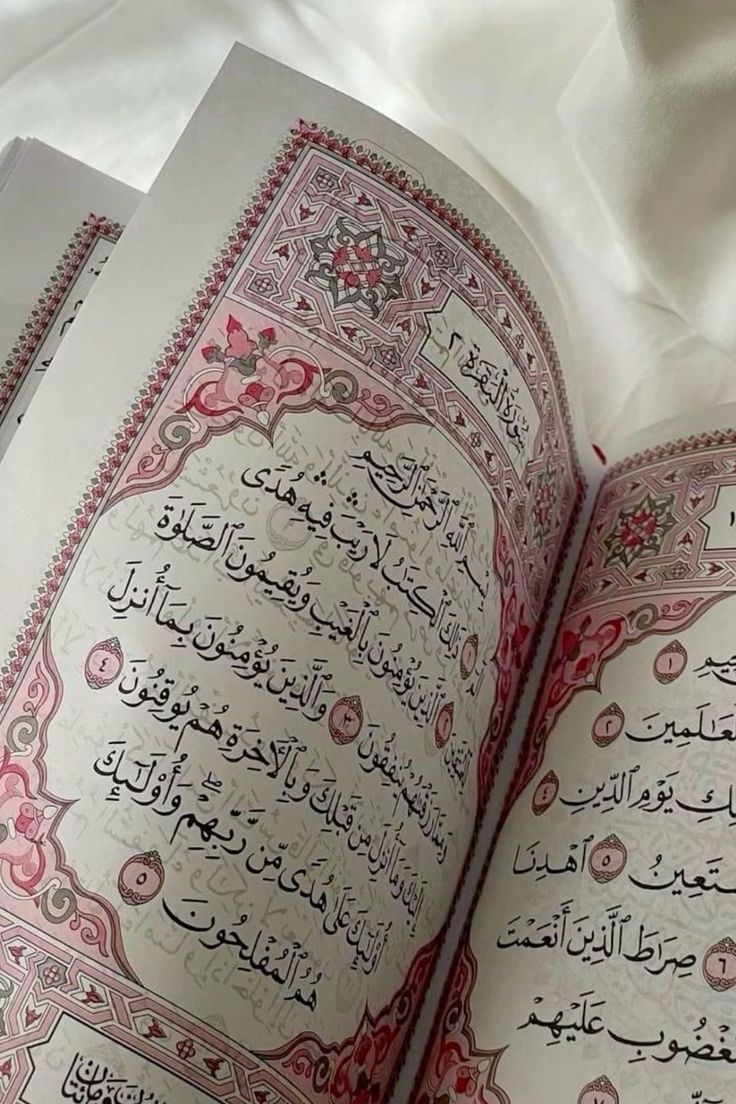 ١
ـحِيمِ ١
ـلْعَٰلَمِينَ ٢
ـلِكِ يَوْمِ ٱلدِّينِ ٤
ـسْتَعِينُ ٥ ٱهْدِنَا
٦ صِرَٰطَ ٱلَّذِينَ أَنْعَمْتَ
ـمَغْضُوبِ عَلَيْهِمْ
٧
سُورَةُ ٱلْبَقَرَةِ ٢
بِسْمِ ٱللَّهِ ٱلرَّحْمَٰنِ ٱلرَّحِيمِ
الٓمٓ ١ ذَٰلِكَ ٱلْكِتَٰبُ لَا رَيْبَ ۛ فِيهِ ۛ هُدًى
لِّلْمُتَّقِينَ ٢ ٱلَّذِينَ يُؤْمِنُونَ بِٱلْغَيْبِ وَيُقِيمُونَ ٱلصَّلَوٰةَ
وَمِمَّا رَزَقْنَٰهُمْ يُنفِقُونَ ٣ وَٱلَّذِينَ يُؤْمِنُونَ بِمَآ أُنزِلَ
إِلَيْكَ وَمَآ أُنزِلَ مِن قَبْلِكَ وَبِٱلْءَاخِرَةِ هُمْ يُوقِنُونَ ٤
أُو۟لَٰٓئِكَ عَلَىٰ هُدًى مِّن رَّبِّهِمْ ۖ وَأُو۟لَٰٓئِكَ
هُمُ ٱلْمُفْلِحُونَ ٥